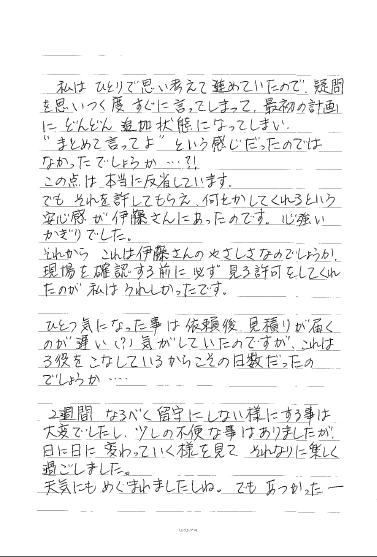 私は ひとりで思い考えて進めていたので、疑問
を思いつく度 すぐに言ってしまって、最初の計画
に どんどん 追加状態になってしまい、
"まとめて言ってよ" という感じだったのでは
なかったでしょうか…?!
この点は 本当に反省しています。
でも それを許してもらえ、何とかしてくれるという
安心感が伊藤さんにあったのです。心強い
かぎりでした。
それから これは伊藤さんのやさしさなのでしょうか、
現場を確認する前に必ず見る許可をしてくれ
たのが 私は うれしかったです。
ひとつ気になった事は依頼後、見積りが届く
のが遅い(?)気がしていたのですが、これは
3役をこなしているからこその日数だったの
でしょうか‥‥
2週間 なるべく留守にしない様にする事は
大変でしたし、少しの不便な事はありましたが、
日に日に変わっていく様を見て それなりに楽しく
過ごしました。
天気にもめぐまれましたしね。でも あつかったー